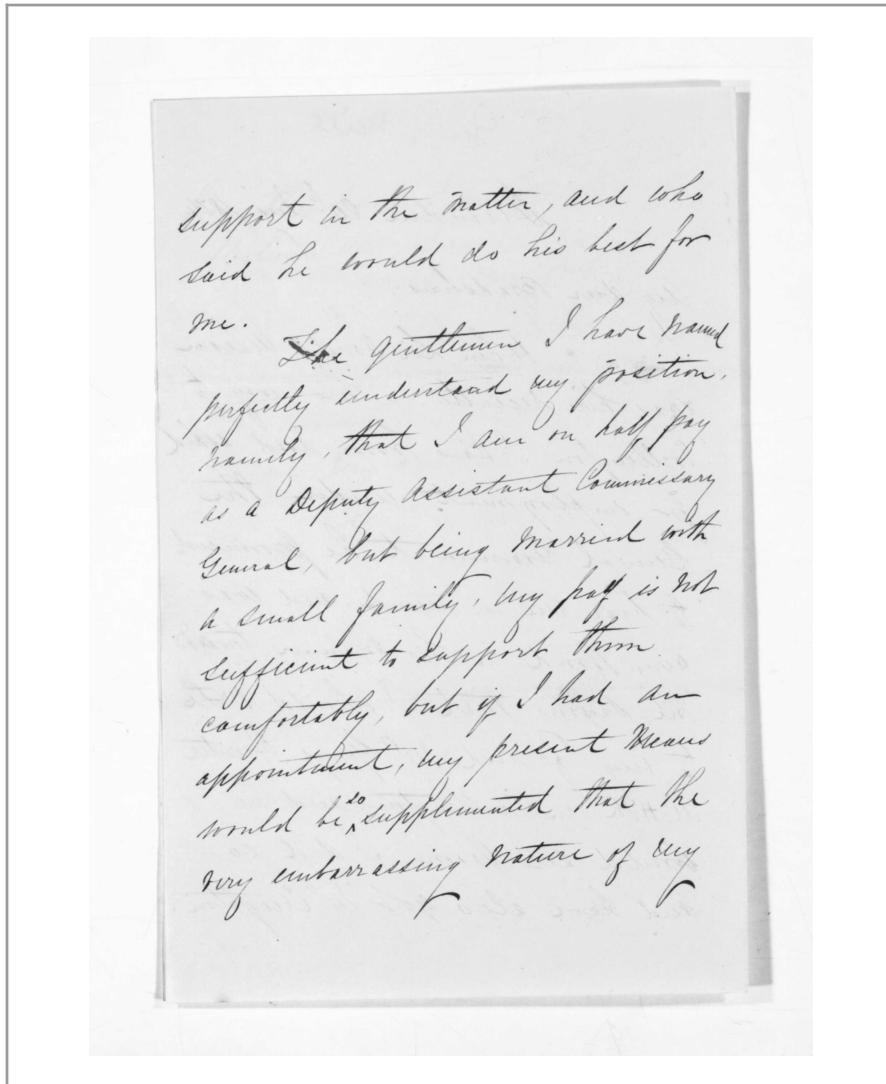 support in the matter, and who
said he would do his best for
me.
The gentlemen I have named
perfectly understand my position,
namely, that I am on half pay
as a Deputy Assistant Commissary
General, but being married with
a small family, my pay is not
sufficient to support them
comfortably, but if I had an
appointment, my present means
would be so supplemented that the
very embarrassing nature of my